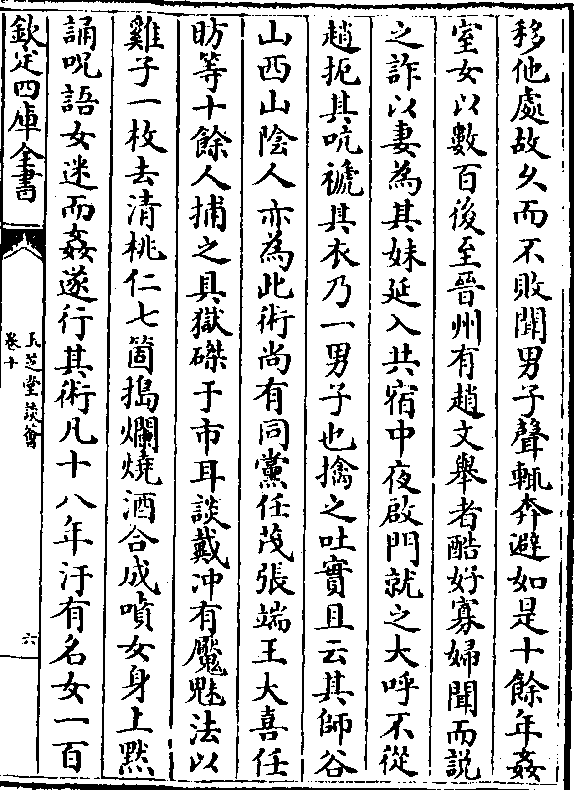 移他處故乆而不敗聞男子聲輒奔避如是十餘年姦
室女以數百後至晉州有趙文舉者酷好寡婦聞而説
之詐以妻為其妹延入共宿中夜啟門就之大呼不從
趙扼其吭褫其衣乃一男子也擒之吐實且云其師谷
山西山陰人亦為此術尚有同黨任茂張端王大喜任
昉等十餘人捕之具獄磔于市耳談戴冲有魘魅法以
雞子一枚去清桃仁七箇搗爛燒酒合成噴女身上黙
誦呪語女迷而姦遂行其術凡十八年汙有名女一百
欽定四庫全書
玉芝堂談薈
卷十
六